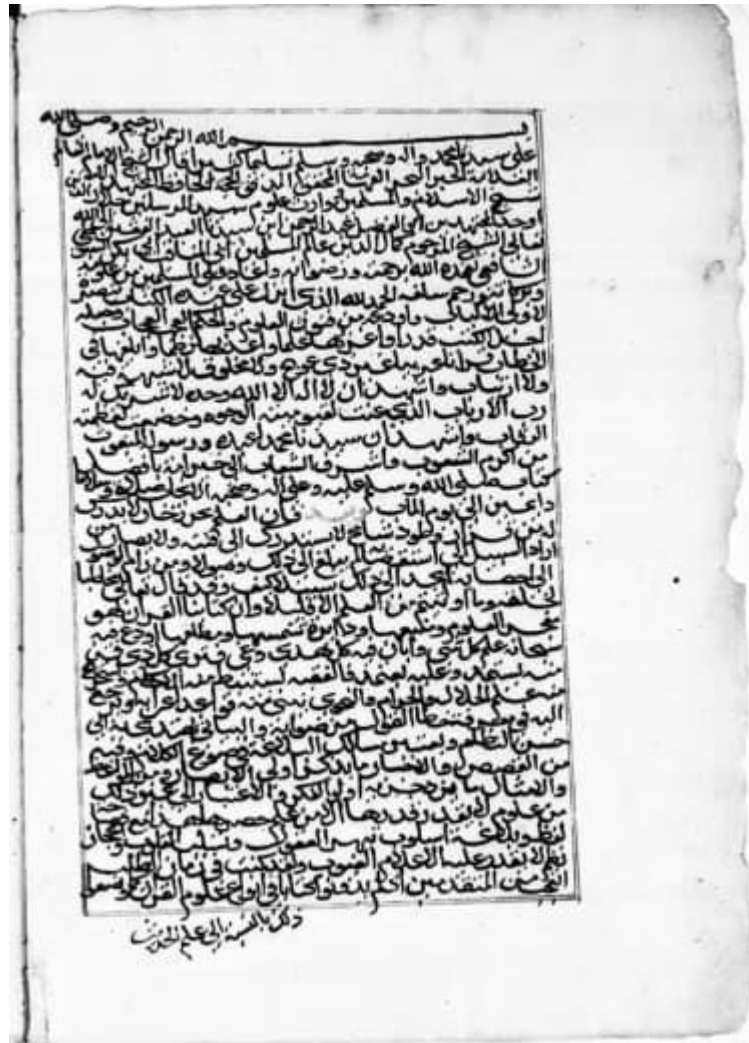 بسم الله الرحمن الرحيم وصلى الله
على سيدنا محمد واله وصحبه وسلم تسليما كثيرا قال الشيخ الامام العالم
العلامة الحبر البحر الفهامة المحقق المدقق الحجة الحافظ المجتهد
شيخ الاسلام والمسلمين وارث علوم سيد المرسلين جلال الدين
اوحد المجتهدين ابي الفضل عبد الرحمن ابن سيدنا العبد الفقير الى الله
تعالى الشيخ المرحوم كمال الدين عالم المسلمين ابي المناقب ابي بكر
الشافعي تغمده الله برحمته ورضوانه واعاد على المسلمين من علومه
وبركاته ورحم سلفه الحمد لله الذي انزل على عبده الكتاب تبصرة
لاولي الالباب واودعه من فنون العلوم والحكم العجب العجاب وجعله
اجل الكتب قدرا واغزرها علما واعذبها نظما وابلغها في
الخطاب قرانا عربيا غير ذي عوج ولا مخلوق لا شبهة فيه
ولا ارتياب واشهد ان لا اله الا الله وحده لا شريك له
رب الارباب الذي عنت لقيوميته الوجوه وخضعت لعظمته
الرقاب واشهد ان سيدنا محمدا عبده ورسوله المبعوث
من اكرم الشعوب واشرف الشعاب الى خير امة بافضل
كتاب صلى الله وسلم عليه وعلى اله وصحبه الانجاب صلاة وسلاما
دايمين الى يوم الماب وبعد فان العلم بحر زخار لا يدرك
له من قرار وطود شامخ لا يسلك الى قنته ولا يصار من
اراد السبيل الى استقصائه لم يبلغ الى ذلك وصولا ومن رام الوصول
الى احصائه لم يجد الى ذلك سبيلا كيف وقد قال تعالى مخاطبا
لخلقه وما اوتيتم من العلم الا قليلا وان كتابنا القران لهو
مفجر العلوم ومنبعها ودائرة شمسها ومطلعها اودع فيه
سبحانه علم كل شي وابان فيه كل هدي وغي فترى كل ذي فن
منه يستمد وعليه يعتمد فالفقيه يستنبط منه الاحكام ويستخرج
منه علم الحلال والحرام والنحوي يبني منه قواعد اعرابه ويرجع
اليه في معرفة خطا القول من صوابه والبياني يهتدي به الى
حسن النظام ويعتبر مسالك البلاغة في صوغ الكلام وفيه
من القصص والاخبار ما يذكر اولي الابصار ومن المواعظ
والامثال ما يزدجر به اولو الفكر والاعتبار الى غير ذلك
من علوم لا يقدر قدرها الا من علم حصرها هذا مع فصاحة
لفظ وبلاغة اسلوب تبهر العقول وتسلب القلوب واعجاز
نظم لا يقدر عليه الا علام الغيوب ولقد كنت في زمان الطلب
اتعجب من المتقدمين اذ لم يدونوا كتابا في انواع علوم القران كما وضعوا
ذلك بالنسبة الى علم الحديث